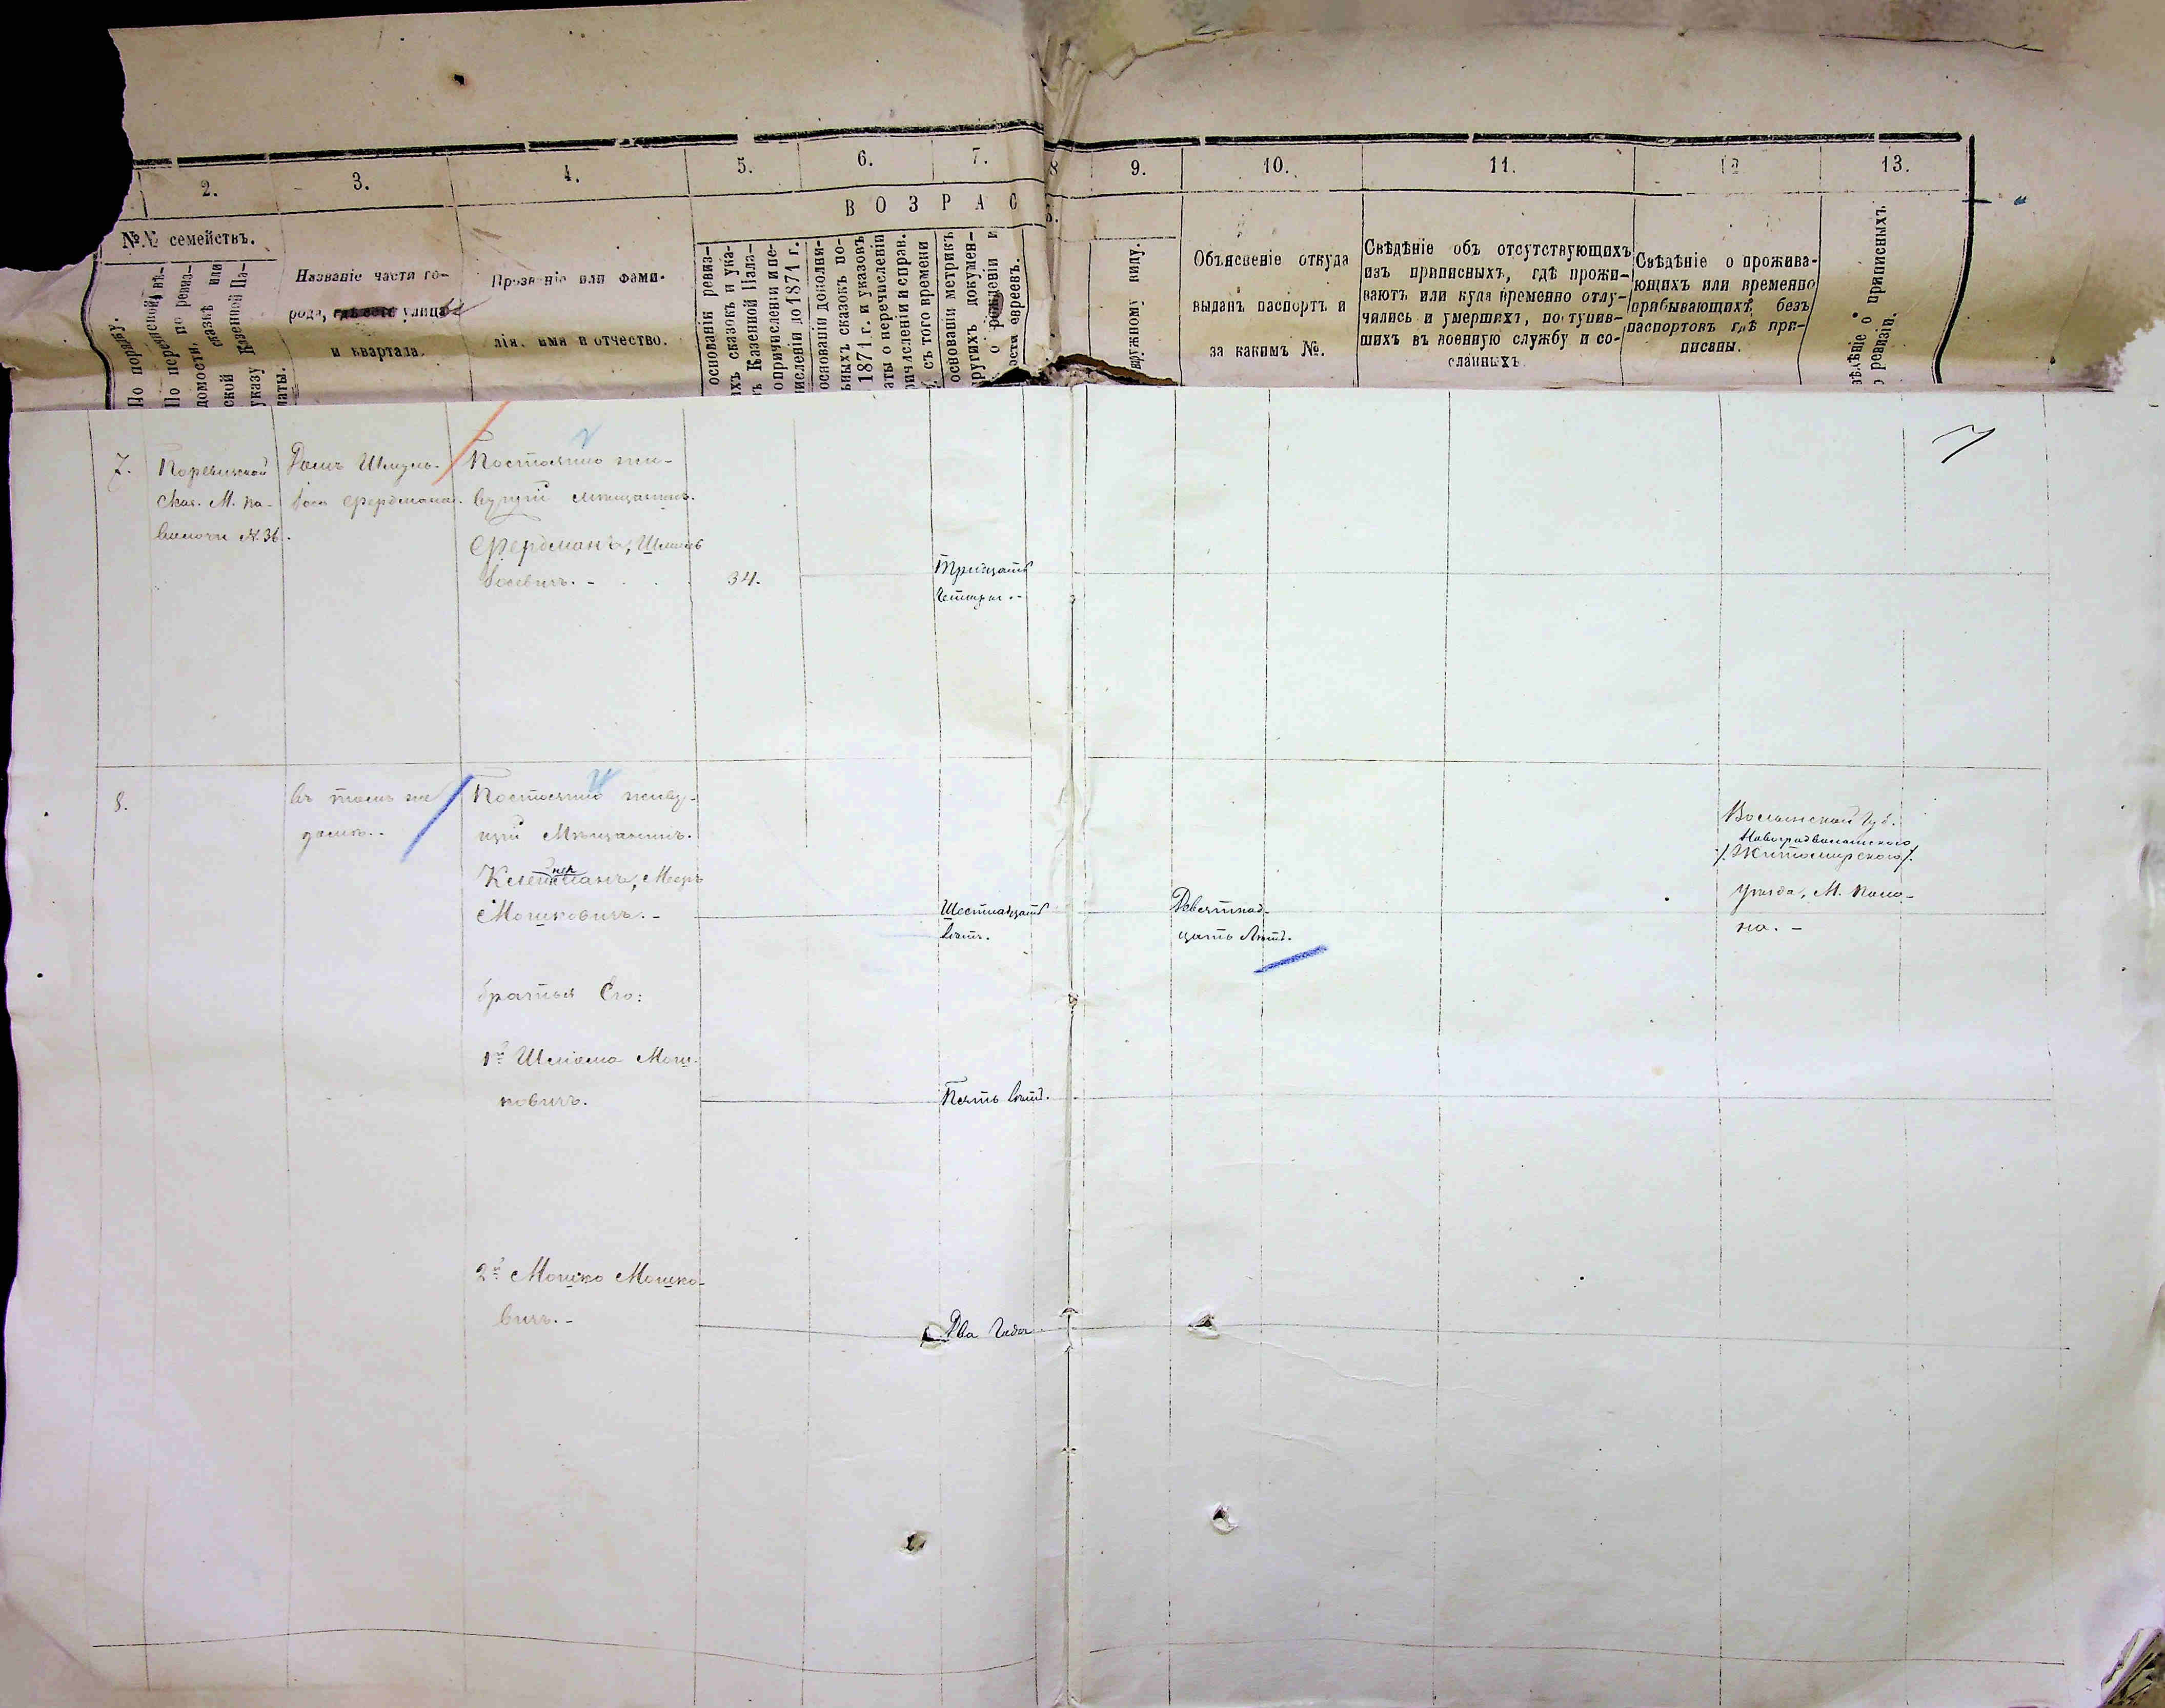 2.
3.
4.
5.
6.
7.
8
9.
10.
11.
12
13.
В О З Р А С
№№ семействъ.
По порядку.
По переписной вѣ-
домости, по ревиз-
ской сказкѣ или
указу Казенной Па-
латы.
Названіе части го-
рода, улица
и квартала.
Прозваніе или фами-
лія, имя и отчество.
основаніи ревиз-
хъ сказокъ и ука-
ъ Казенной Пала-
опричисленіи и пе-
ислені до 1871 г.
основаніи дополни-
ьныхъ сказокъ по-
1871 г. и указовъ
аты о перечисленіи
ричисленіи и справ.
съ того времени
основаніи метрикъ
ругихъ докумен-
о рожденіи и
ости евреевъ.
аружному виду.
Объясненіе откуда
выданъ паспортъ и
за какимъ №.
Свѣдѣніе объ отсутствующихъ
изъ приписныхъ, гдѣ прожи-
ваютъ или куда временно отлу-
чались и умершихъ, поступив-
шихъ въ военную службу и со-
сланныхъ
Свѣдѣніе о прожива-
ющихъ или временно
прибывающихъ безъ
паспортовъ гдѣ при-
писаны.
ѣдѣніе о приписныхъ
о ревизіи.
7
7.
Домъ Шмуль-
Іося Фердмана.
Постоянно жи-
вущій мѣщанинъ.
Фердманъ, Шмуль
Іосевичъ. -
34.
Тридцать
четыре. -
ская. М. Па-
волочи №. 36.
8.
въ томъ же
домѣ. -
Постоянно живу-
щій Мѣщанинъ.
Мееръ
Мошковичъ. -
Шестнадцать
лѣтъ.
Девятнад-
цать лѣтъ.
Волынской Губ.
Новоградволынскаго
/.Житомирскаго/.
уѣзда, М. Поло-
на. -
братья Его:
1й Шліома Мош-
ковичъ.
Пять лѣтъ.
2й Мошко Мошко-
вичъ. -
Два Года